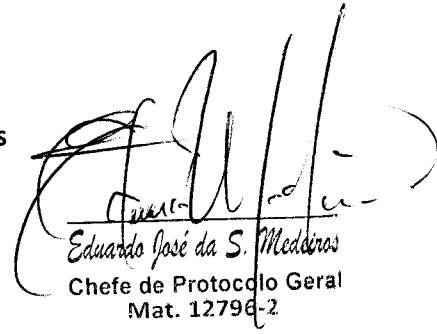 s
Eduardo José da S. Medeiros
Chefe de Protocolo Geral
Mat. 12796-2